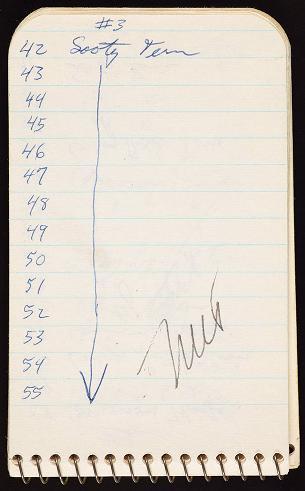 #3
42 Sooty Tern
43
44
45
46
47
48
49
50
51
52
53
54
55